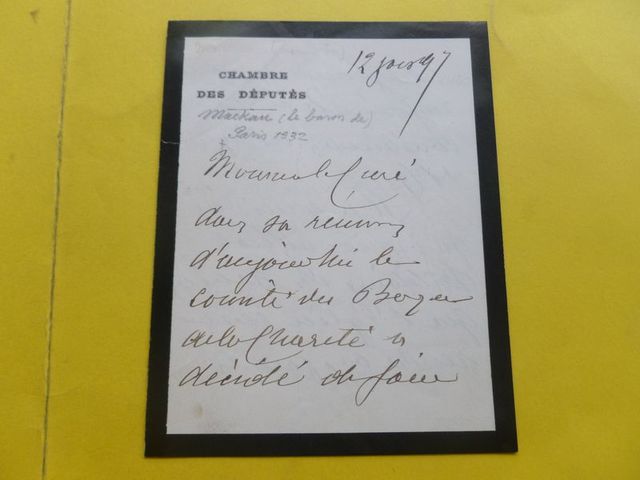 12 juin 97
CHAMBRE
DES DÉPUTÉS
Mackau (le baron de)
Paris 1832
Monsieur le Curé
dans sa réunion
d'aujourd'hui le
comité du Bazar
de la Charité a
décidé de faire